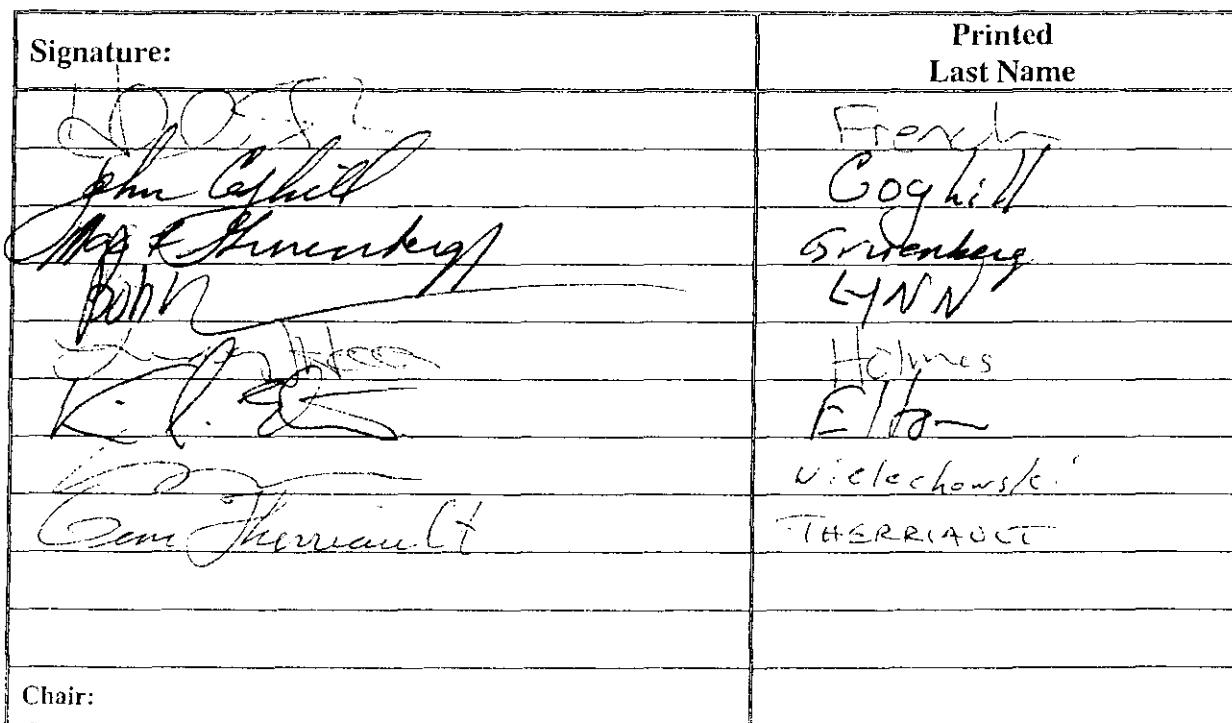 Signature: Printed
Last Name
French
John Coghill Coghill
Max F Gruenberg Gruenberg
Bob Lynn
Holmes
Kim Elton
Wielechowski
Gene Therriault THERRIAULT
Chair: